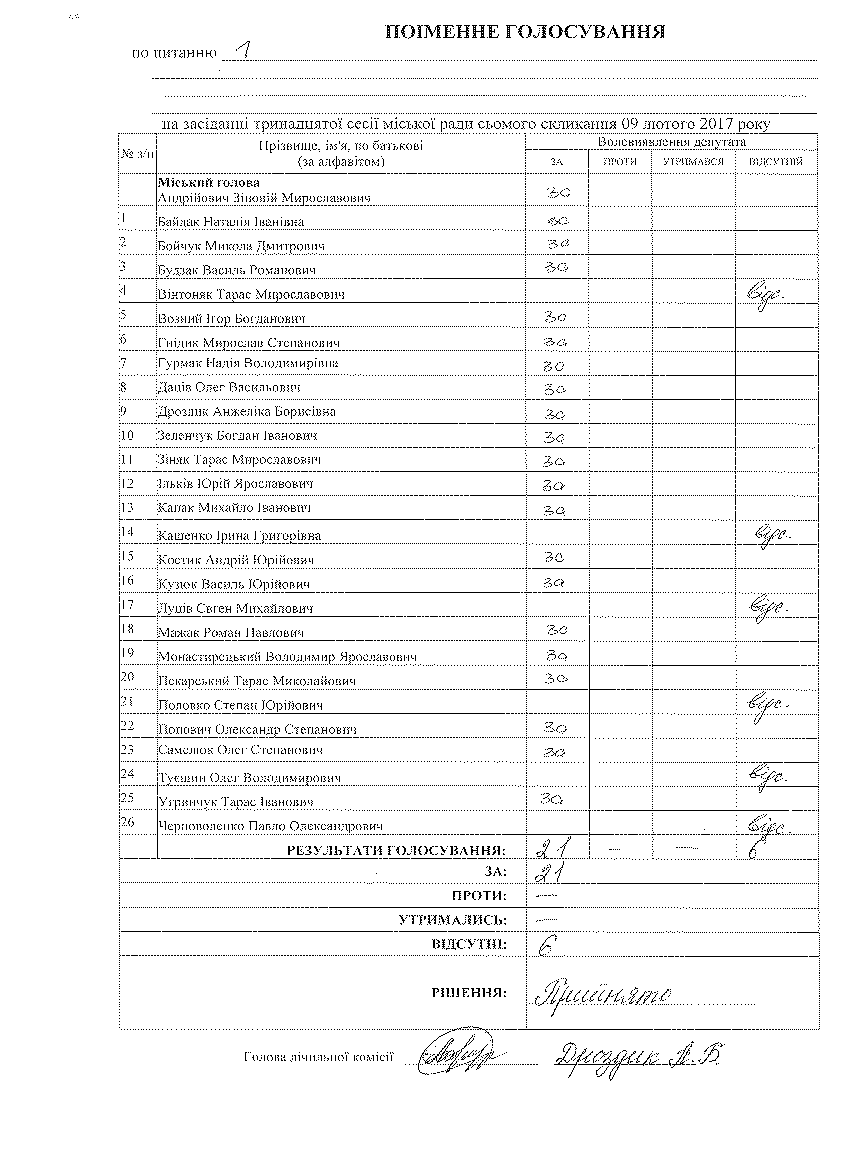 ПОІМЕННЕ ГОЛОСУВАННЯ
по питанню 1
на засіданні тринадцятої сесії міської ради сьомого скликання 09 лютого 2017 року
№ з/п Прізвище, ім'я, по батькові (за алфавітом) Волевиявлення депутата
ЗА ПРОТИ УТРИМАВСЯ ВІДСУТНІЙ
Міський голова
Андрійович Зіновій Мирославович за
1 Байдак Наталія Іванівна за
2 Бойчук Микола Дмитрович за
3 Будзак Василь Романович за
4 Вінтоняк Тарас Мирославович відс.
5 Возний Ігор Богданович за
6 Гнідик Мирослав Степанович за
7 Гурмак Надія Володимирівна за
8 Даців Олег Васильович за
9 Дроздик Анжеліка Борисівна за
10 Зеленчук Богдан Іванович за
11 Зіняк Тарас Мирославович за
12 Ільків Юрій Ярославович за
13 Капак Михайло Іванович за
14 Кашенко Ірина Григорівна відс.
15 Костик Андрій Юрійович за
16 Кузюк Василь Юрійович за
17 Луців Євген Михайлович відс.
18 Мажак Роман Павлович за
19 Монастирецький Володимир Ярославович за
20 Пекарський Тарас Миколайович за
21 Половко Степан Юрійович відс.
22 Попович Олександр Степанович за
23 Самелюк Олег Степанович за
24 Туєшин Олег Володимирович відс.
25 Угринчук Тарас Іванович за
26 Черноволенко Павло Олександрович відс.
РЕЗУЛЬТАТИ ГОЛОСУВАННЯ: 21 — — 6
ЗА: 21
ПРОТИ: —
УТРИМАЛИСЬ: —
ВІДСУТНІ: 6
РІШЕННЯ: Прийнято
Голова лічильної комісії Дроздик А. Б